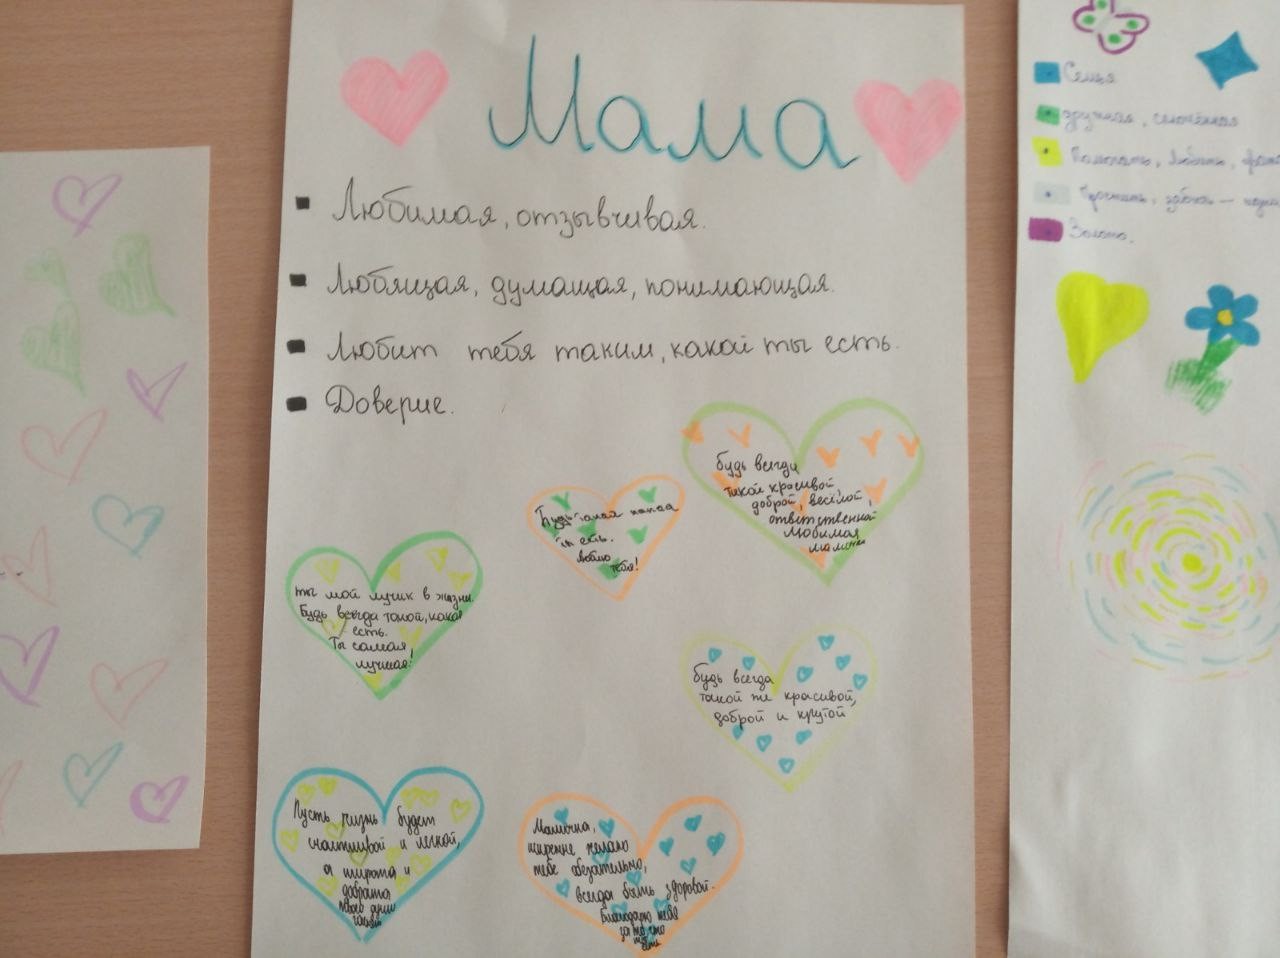 Мама
Любимая, отзывчивая.
Любящая, думащая, понимающая.
Любит тебя таким, какой ты есть.
Доверие.
Будь всегда
такой красивой
доброй, весёлой,
ответственной
любимая
мамочка
Будь такой какая
ты есть.
люблю
тебя!
Ты мой лучик в жизни.
Будь всегда такой, какая
есть.
Ты самая,
лучшая!
Будь всегда
такой же красивой,
доброй и крутой
Пусть жизнь будет
счастливой и легкой,
а широта и
доброта
твоей души
Мамочка,
искренне желаю
тебе обязательно,
всегда быть здоровой.
Благодарю тебя
за то, что
ты
есть
Семья
дружная, сплочённая
Помогать, любить,
Простить, забота —
Золото.